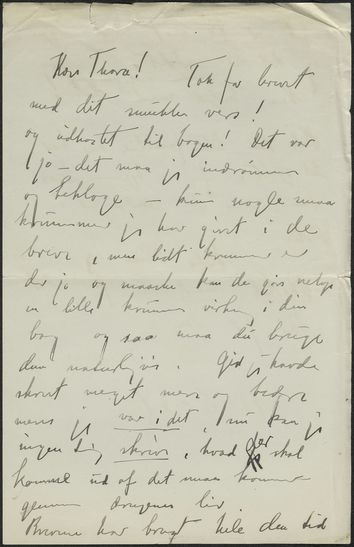 Kære Thora! Tak for brevet
med dit smukke vers!
og udkastet til bogen! Det var
jo – det maa jeg indrømme
og beklage – kun nogle smaa
jeg har givet i de
breve, men lidt kommer
der jo og maaske kan de gøre
en lille virkning i din
bog og saa maa du bruge
dem naturligvis. Gid jeg havde
skrevet meget mere og bedre
mens jeg var i det, nu kan jeg
ingen ting skrive, hvad der skal
komme ud af det maa komme
gennem drengenes liv.
har brugt hele den tid